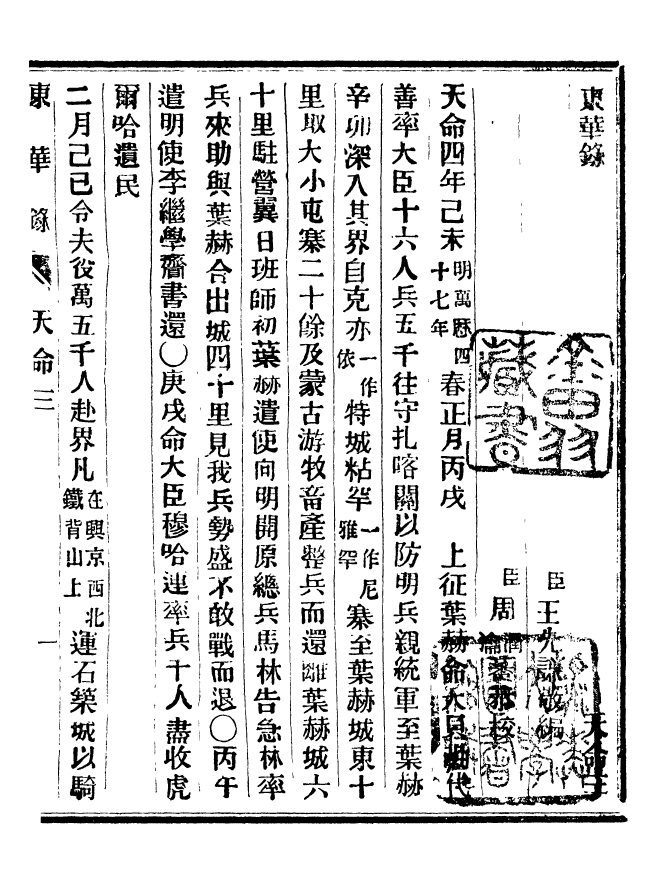 東華錄
天命三
臣王先謙敬編
臣周潤蕃瀹蕃恭校
天命四年己未明萬曆四十七年春正月丙戌 上征葉赫命大貝勒代
善率大臣十六人兵五千往守扎喀關以防明兵親統軍至葉赫
辛卯深入其界自克亦一作依特城粘罕一作尼雅罕寨至葉赫城東十
里取大小屯寨二十餘及蒙古游牧畜產整兵而還離葉赫城六
十里駐營翼日班師初葉赫遣使向明開原總兵馬林告急林率
兵來助與葉赫合出城四十里見我兵勢盛不敢戰而退〇丙午
遣明使李繼學齎書還〇庚戌命大臣穆哈連率兵千人盡收虎
爾哈遺民
二月己巳令夫役萬五千人赴界凡在興京西北鐵背山上運石築城以騎
東華錄 天命三 一